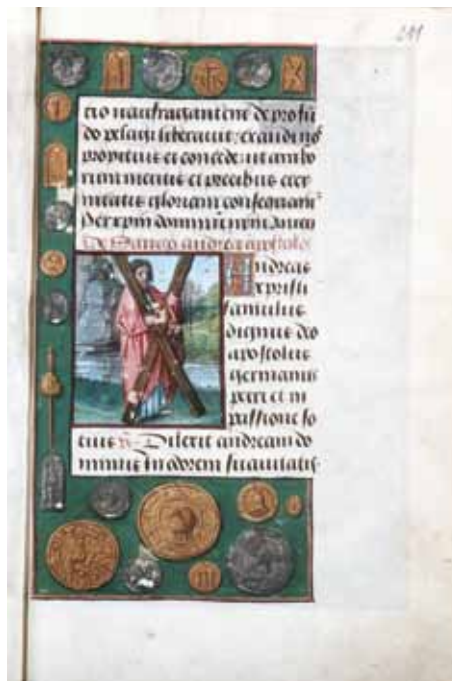 211
tio naufragantem de profu
do pelagi liberauit: exaudi nos
propitius et concede: ut ambo
rum meritis et precibus eter
nitatis gloriam
Per xpm dominu nrm Amen
De Sancto andrea apostolo
Andreas
xpristi
famulus
dignus deo
apostolus
germanus
petri et in
passione so
cius Dilexit andream do
minus In odorem suauitatis